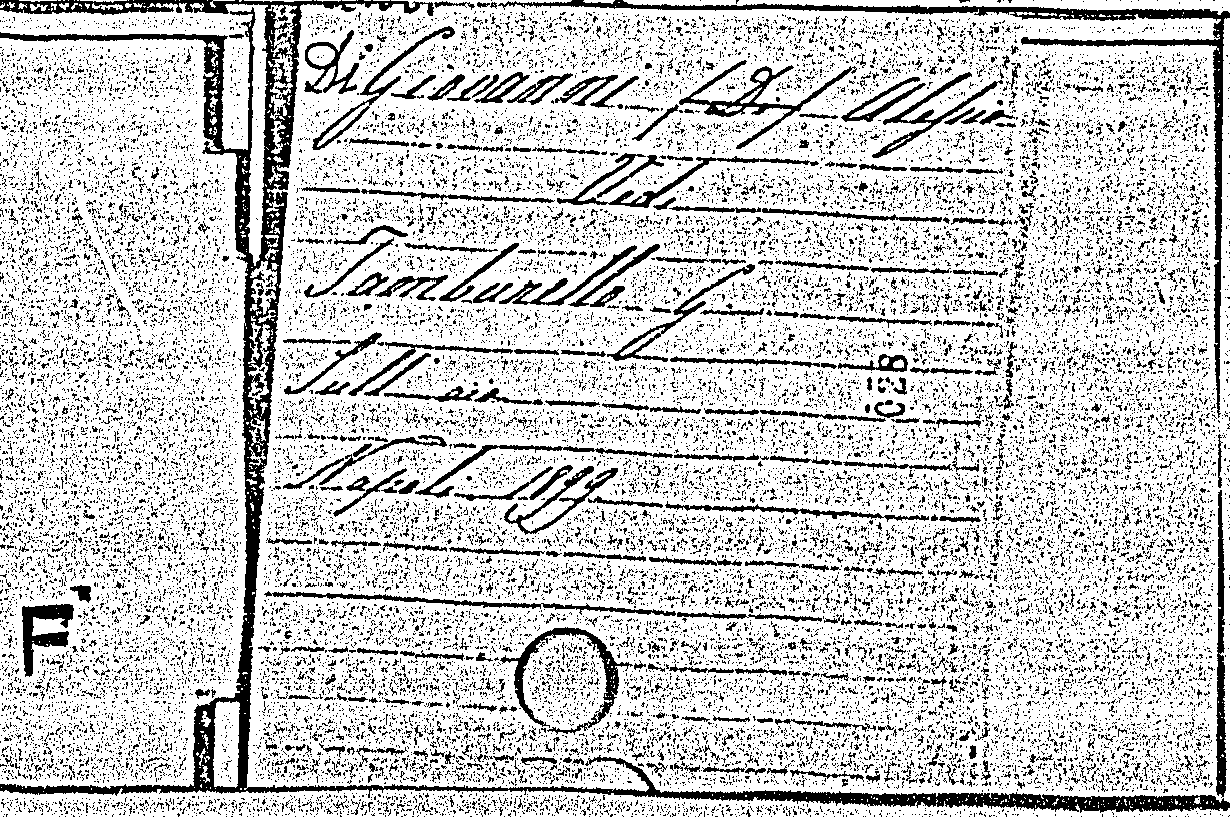 Di Giovanni (D.) Alessio
Ved.
Tamburello G.
Sull' aia
Napoli 1899
C28
F